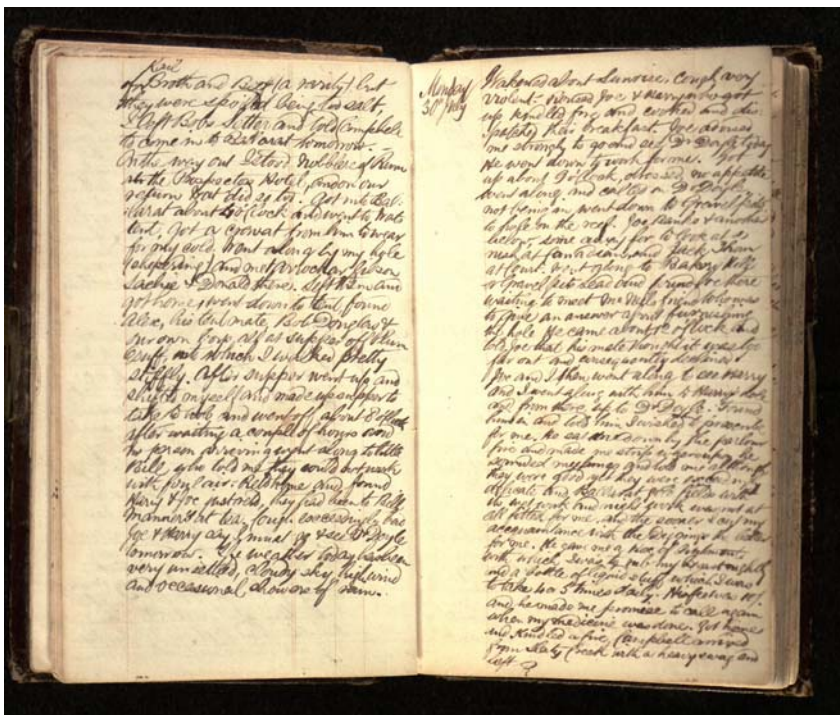 Kail
of Broth and Beef (a rarity) but
they were spoiled being too salt.
I left Bob's letter and told Campbell
to come in to Ballarat tomorrow. —
On the way out I stood nobblers of Rum
at the Prospectors Hotel, and on our
return that did so too. Got into Bal-
larat about 4 o'clock and went to
tent. Got a cravat from him to wear
for my cold. Went along by my hole
and met
& Donald there. Left them and
got home, went down to tent, found
Alex, his tent mate, Bob Douglas &
our own Corp, all at supper of Plum
Duff, into which I walked pretty
stiffly. After supper went up and
myself and made up supper to
take to and went off about 8 o'clock
after waiting a couple of hours and
no person arriving went along to little
Bill, who told me they could not work
with foul air. Retd home and found
Harry & Joe just retd, they had been to Bill
Manners at tea. Cough excessively bad
Joe & Harry say I must go & see Dr Doyle
tomorrow. The weather today has been
very unsettled, cloudy sky, high wind
and occasional showers of rain.
Monday
30th July
Wakened about Sunrise, cough very
violent. Joe & Harry who got
up kindled fire and cooked and dis-
patched their breakfast. Joe advised
me strongly to go and see Dr Doyle today
He went down to work for me. Got
up about o'clock, dressed, no appetite
went along and called on Dr Doyle,
not being in, went down to Gravel Pits
to Joe on the reef. Joe Banks & another
away for to look at a
rush at Canadian, and Jack
at Court. Went along to Bakery Hill
& Gravel Pits Lead and found Joe there
waiting to meet friend who was
to give an answer about purchasing
the hole. He came about 12 o'clock and
told Joe that his mate thought it was too
far out and consequently declined.
Joe and I then went along to see Harry
and I went along with him to Harry's hole
and from there up to Dr Doyle. Found
him in and told him I wished to prescribe
for me. He sat me down by the parlour
fire and made me strip & examined. He
sounded my lungs and told me altho'
they were good yet they were
delicate and that the Gold fields with
its wet work and night work was not at
all fitted for me. And the sooner I cut my
acquaintance with the Diggings the better
for me. He gave me a box of Liniment
with which I was to rub my breast night
and a bottle of liquid stuff which I was
to take 4 or 5 times daily. His fee was 10/.
and he made me promise to call again
when my medicine was done. Got home
and kindled a fire, Campbell arrived
from Slaty Creek with a heavy swag and
left